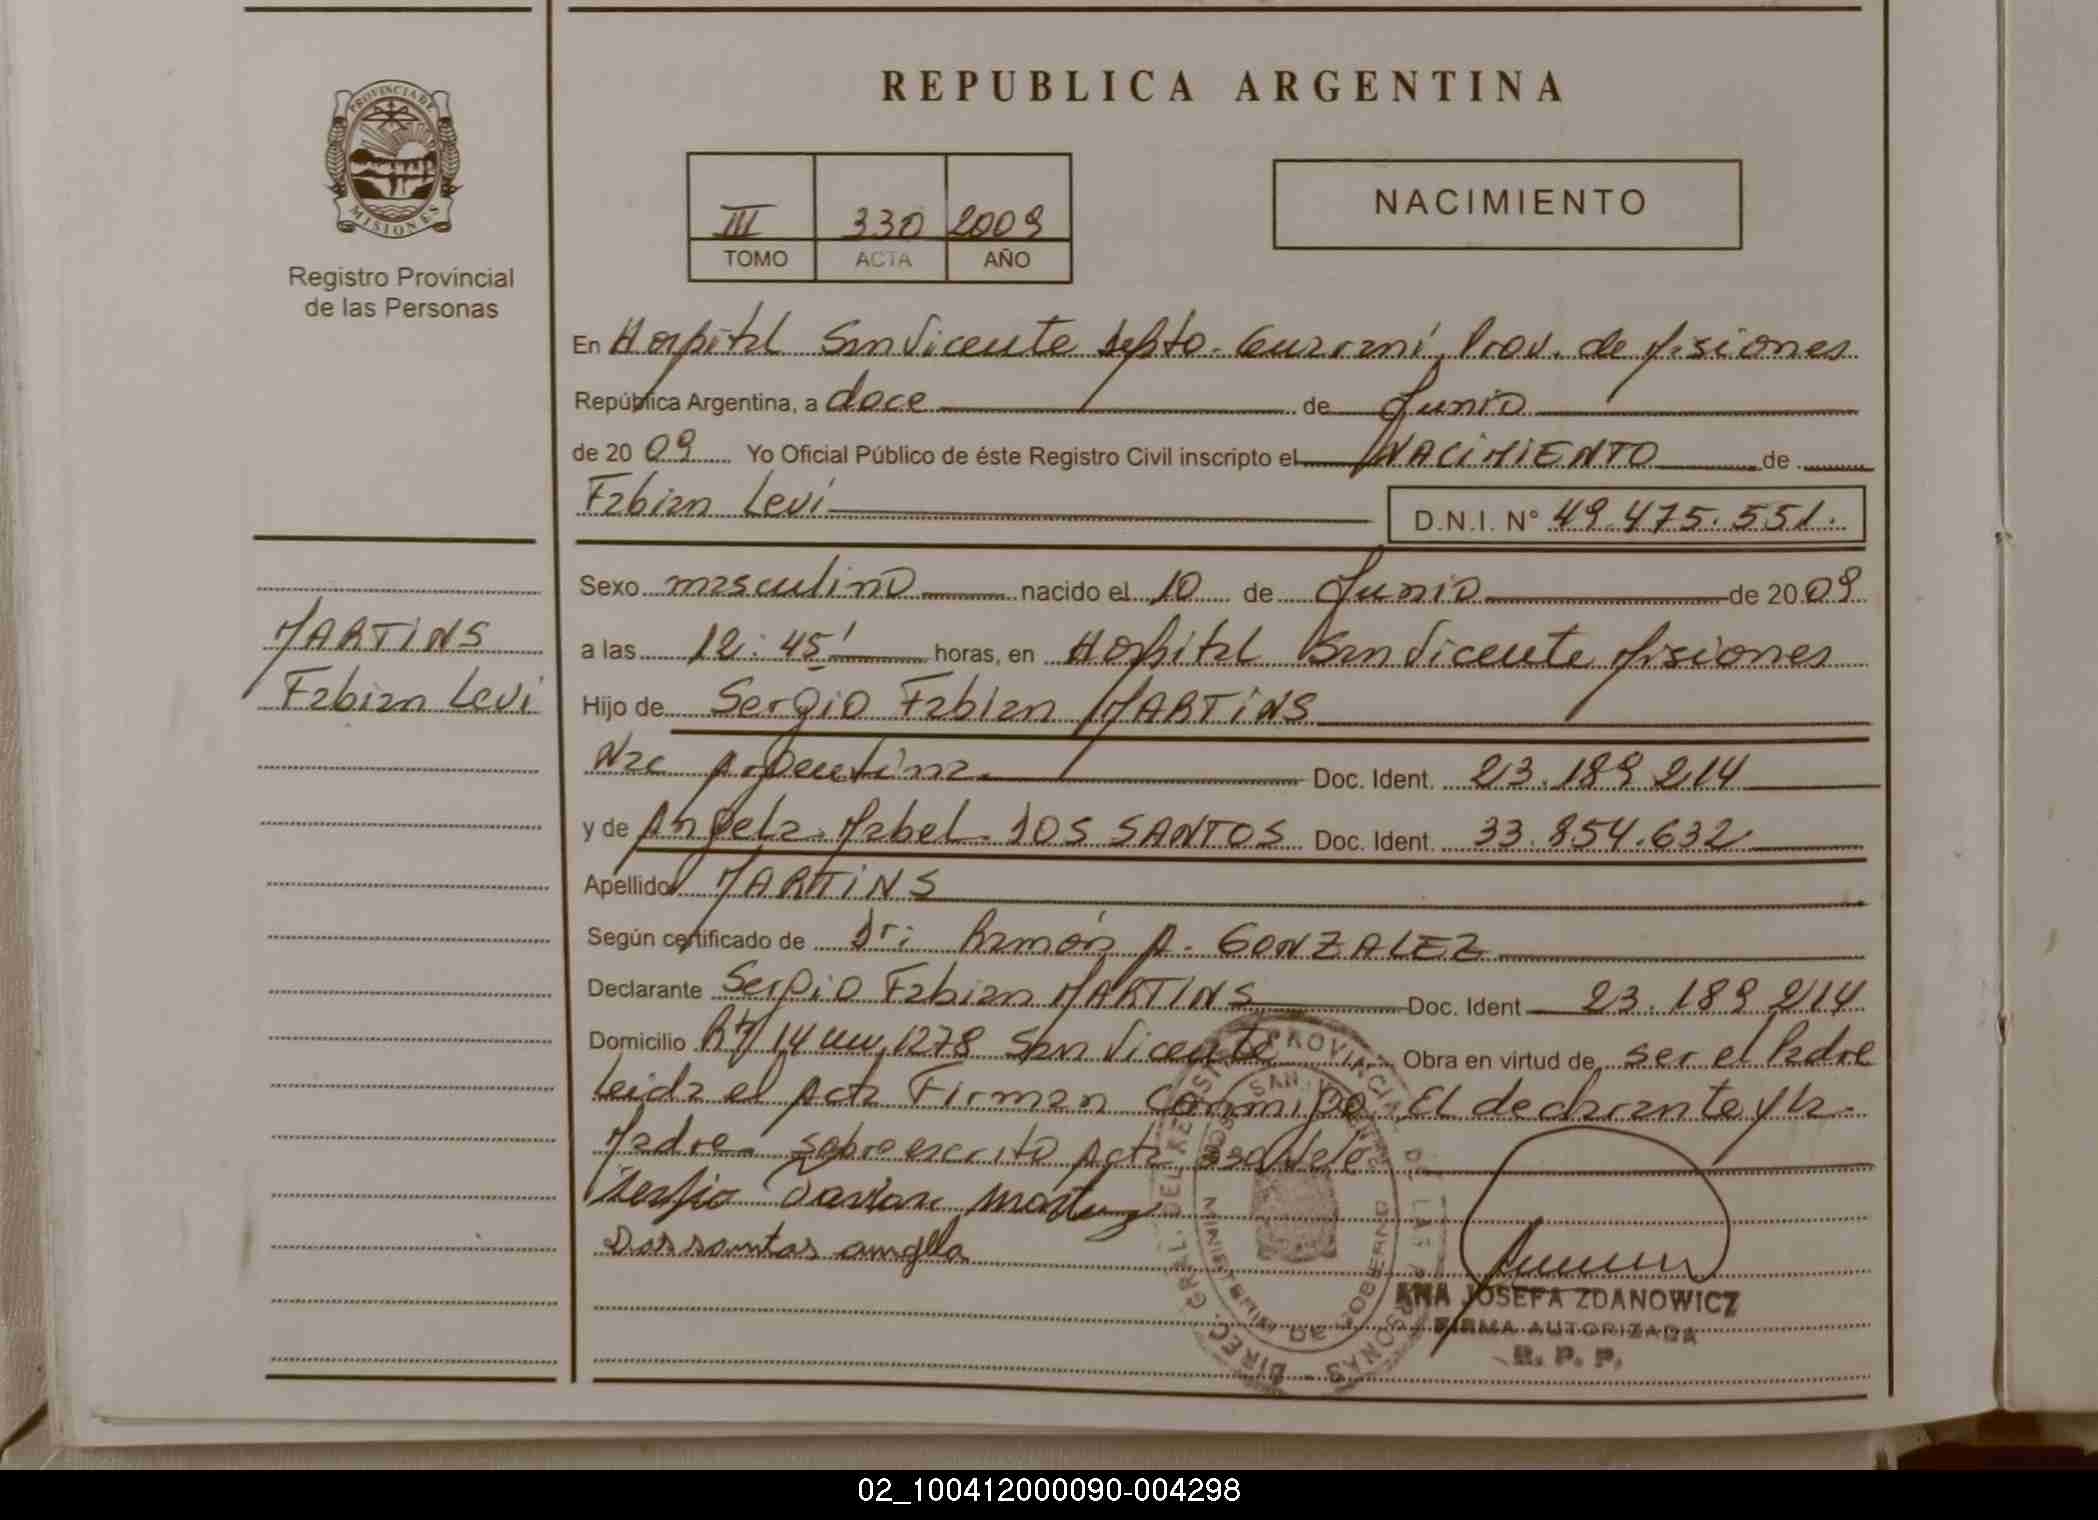 REPUBLICA ARGENTINA
PROVINCIA DE
MISIONES
Registro Provincial
de las Personas
III 330 2009
TOMO ACTA AÑO
NACIMIENTO
En Hospital San Vicente Depto. Guarani, Prov. de Misiones
República Argentina, a doce de Junio
de 20 09 Yo Oficial Público de éste Registro Civil inscripto el NACIMIENTO de
Fabian Levi
D.N.I. Nº 49.475.551.
MARTINS
Fabian Levi
Sexo masculino nacido el 10 de Junio de 20 09
a las 12:45' horas, en Hospital San Vicente Misiones
Hijo de Sergio Fabian MARTINS
Nac Argentina Doc. Ident. 23.189 214
y de Angela Mabel DOS SANTOS Doc. Ident. 33.854.632
Apellido MARTINS
Según certificado de Dr: Ramón A. GONZALEZ
Declarante Sergio Fabian MARTINS Doc. Ident 23.189 214
Domicilio 14 1278 San Vicente Obra en virtud de ser el Padre
Leida el Acta Firman Conmigo, El declarante y la
Madre. Sobreescrito Acta 330 Vele
Dos santos angela
DIREC. GRAL. DEL REGISTRO PROVINCIAL DE LAS PERSONAS
MINISTERIO DE GOBIERNO
ANA JOSEFA ZDANOWICZ
FIRMA AUTORIZADA
R. P. P.
02_100412000090-004298